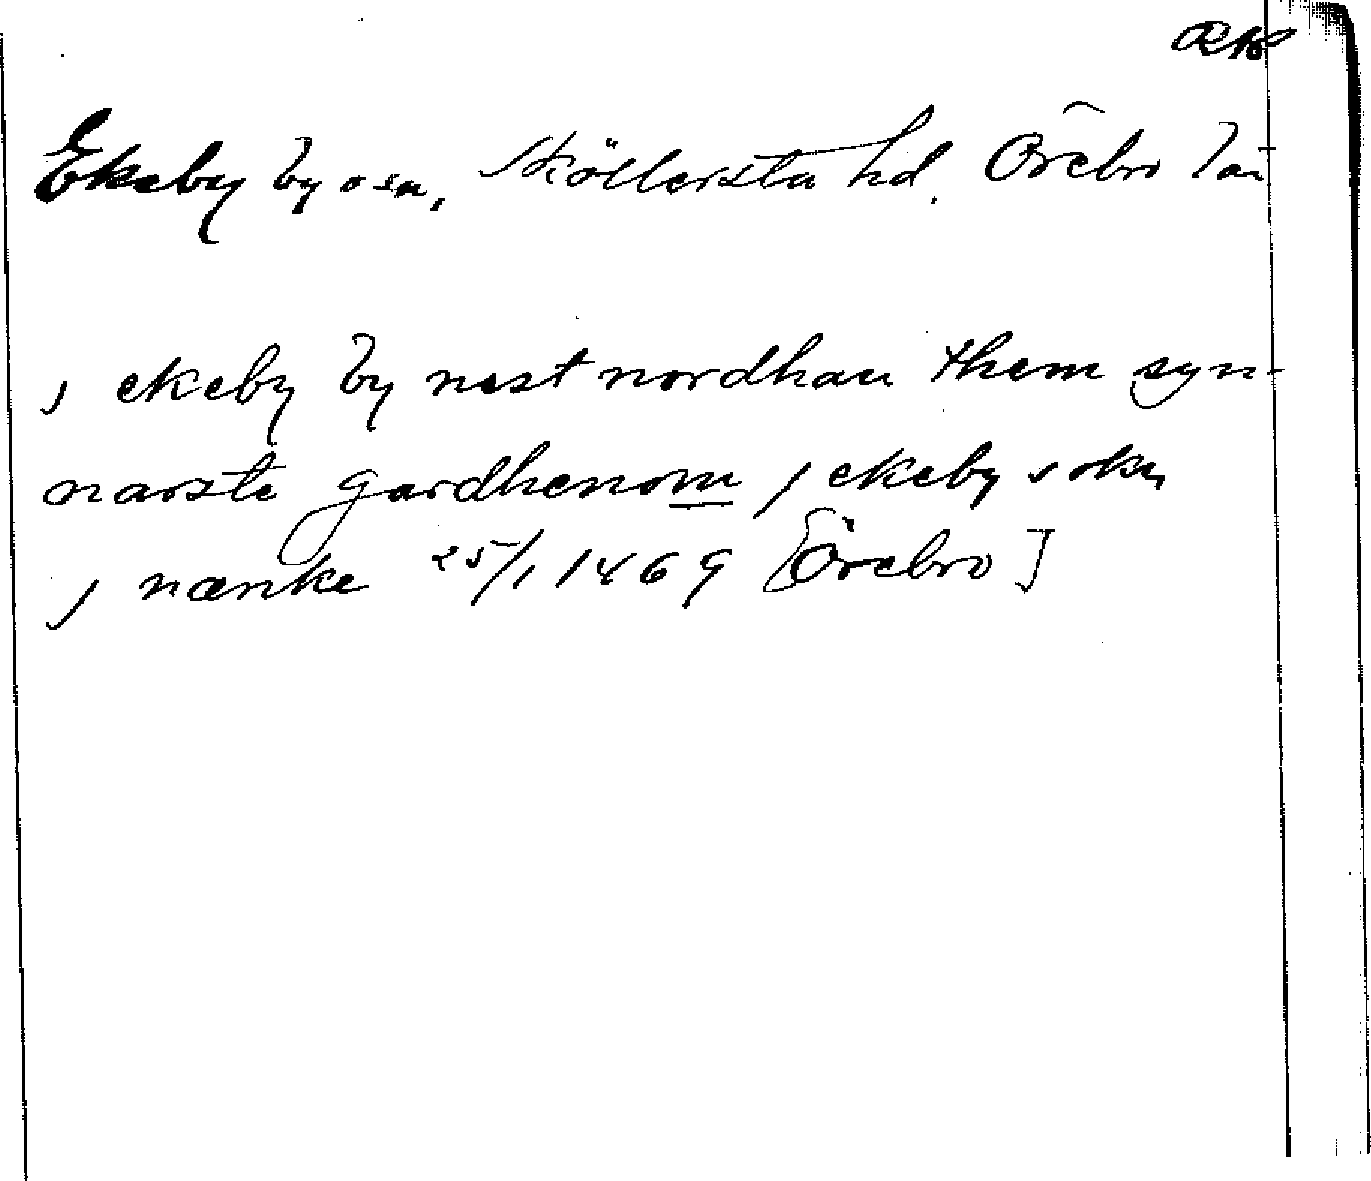 Ekeby by o sn, Sköllersta hd. Örebro län
j ekeby by nest nordhan them syn-
narste gardhenom j ekeby sokn
j nærike 25/1 1469 [Örebro]